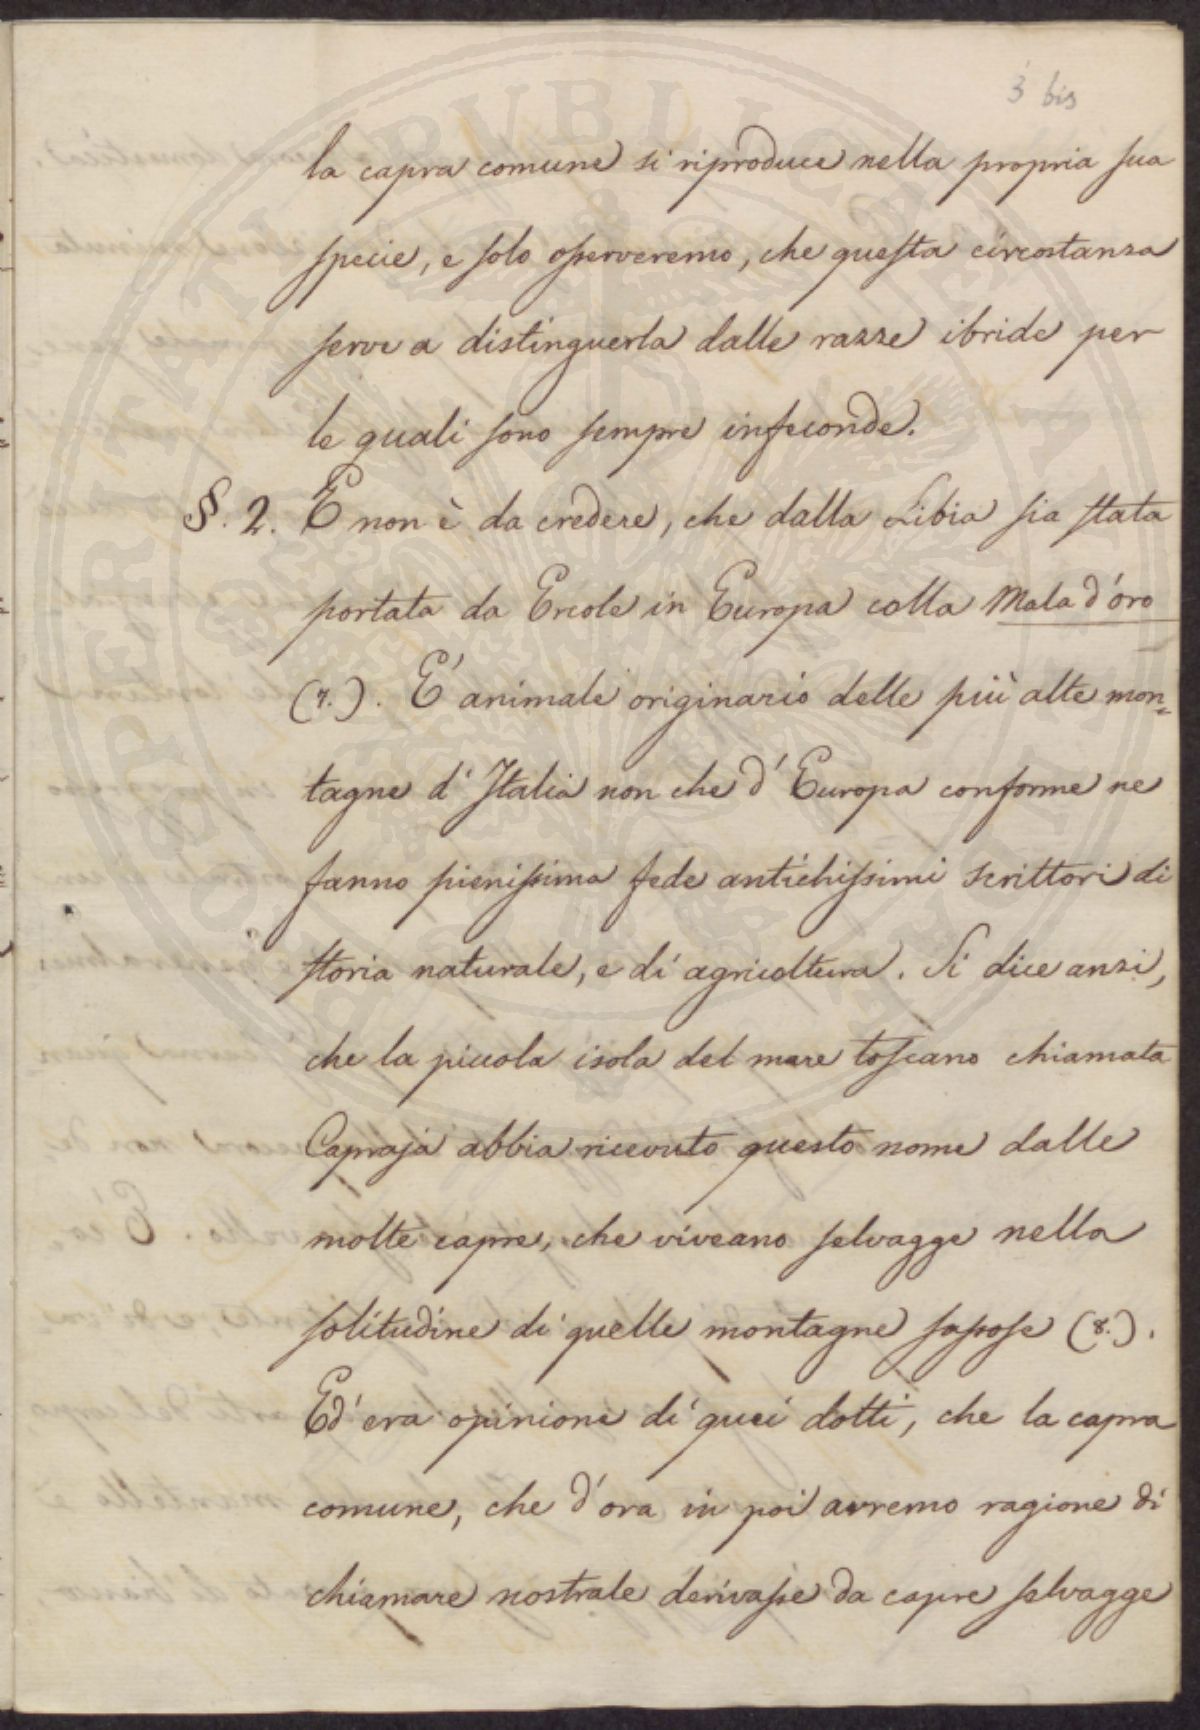 3 bis
la capra comune si riproduce nella propria sua
specie, e solo osserveremo, che questa circostanza
serve a distinguerla dalle razze ibride per
le quali sono sempre infeconde.
§. 2. E non è da credere, che dalla Libia sia stata
portata da Ercole in Europa colla Mala d'oro
(7.). E' animale originario delle più alte mon=
tagne d'Italia non che d'Europa conforme ne
fanno pienissima fede antichissimi scrittori di
storia naturale, e di agricoltura. Si dice anzi,
che la piccola isola del mare toscano chiamata
Capraja abbia ricevuto questo nome dalle
molte capre, che viveano selvagge nella
solitudine di quelle montagne sassose (8.).
Ed era opinione di quei dotti, che la capra
comune, che d'ora in poi avremo ragione di
chiamare nostrale derivasse da capre selvagge